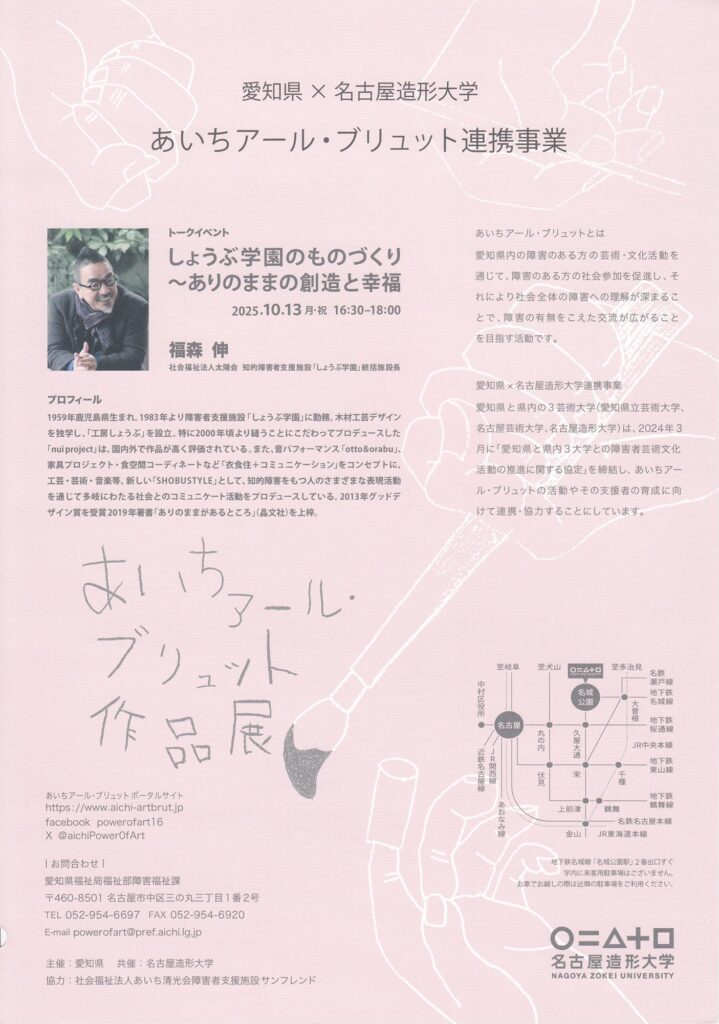 愛知県 × 名古屋造形大学
あいちアール・ブリュット連携事業
トークイベント
しょうぶ学園のものづくり
～ありのままの創造と幸福
2025.10.13 月・祝 16:30–18:00
福森 伸
社会福祉法人太陽会 知的障害者支援施設「しょうぶ学園」統括施設長
プロフィール
1959年鹿児島県生まれ。1983年より障害者支援施設「しょうぶ学園」に勤務。木材工芸デザイン
を独学し、「工房しょうぶ」を設立。特に2000年頃より縫うことにこだわってプロデュースした
「nui project」は、国内外で作品が高く評価されている。また、音パフォーマンス「otto&orabu」、
家具プロジェクト・食空間コーディネートなど「衣食住＋コミュニケーション」をコンセプトに、
工芸・芸術・音楽等、新しい「SHOBUSTYLE」として、知的障害をもつ人のさまざまな表現活動
を通じて多岐にわたる社会とのコミュニケート活動をプロデュースしている。2013年グッドデ
ザイン賞を受賞2019年著書「ありのままがあるところ」（晶文社）を上梓。
あいちアール・ブリュットとは
愛知県内の障害のある方の芸術・文化活動を
通じて、障害のある方の社会参加を促進し、そ
れにより社会全体の障害への理解が深まるこ
とで、障害の有無をこえた交流が広がること
を目指す活動です。
愛知県×名古屋造形大学連携事業
愛知県と県内の3芸術大学（愛知県立芸術大学、
名古屋芸術大学、名古屋造形大学）は、2024年3
月に「愛知県と県内3大学との障害者芸術文化
活動の推進に関する協定」を締結し、あいちアー
ル・ブリュットの活動やその支援者の育成に向
けて連携・協力することにしています。
あいち
アール・
ブリュット
作品展
あいちアール・ブリュット ポータルサイト
https://www.aichi-artbrut.jp
facebook powerofart16
X @aichiPower0fArt
| お問合わせ |
愛知県福祉局福祉部障害福祉課
〒460-8501 名古屋市中区三の丸三丁目1番2号
TEL 052-954-6697 FAX 052-954-6920
E-mail powerofart@pref.aichi.lg.jp
主催：愛知県 共催：名古屋造形大学
協力：社会福祉法人あいち清光会障害者支援施設サンフレンド
至岐阜
至犬山
至多治見
名鉄
瀬戸線
名城
公園
地下鉄
名城線
大曽根
中村区役所
名古屋
丸の内
久屋大通
地下鉄
桜通線
JR中央本線
近鉄名古屋線
JR関西線
伏見
栄
千種
地下鉄
東山線
あおなみ線
上前津
鶴舞
地下鉄
鶴舞線
名鉄名古屋本線
金山
JR東海道本線
地下鉄名城線「名城公園駅」2番出口すぐ
学内に来客用駐車場はございません。
お車でお越しの際は近隣の駐車場をご利用ください。
名古屋造形大学
NAGOYA ZOKEI UNIVERSITY